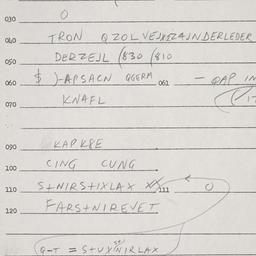 030 O
040 TRON QZOLVEJXEZAJNDERLEDER
050 DERZEJL (830 (810
060 $ )-APSACN GGERM 061 - GAP IN
070 KNAFL
090 KAPKRE
100 CING CUNG
110 S+NIRS+IXLAX XX 111 O
120 FARS+NIREVET
G-T = S+UX NIRLAX